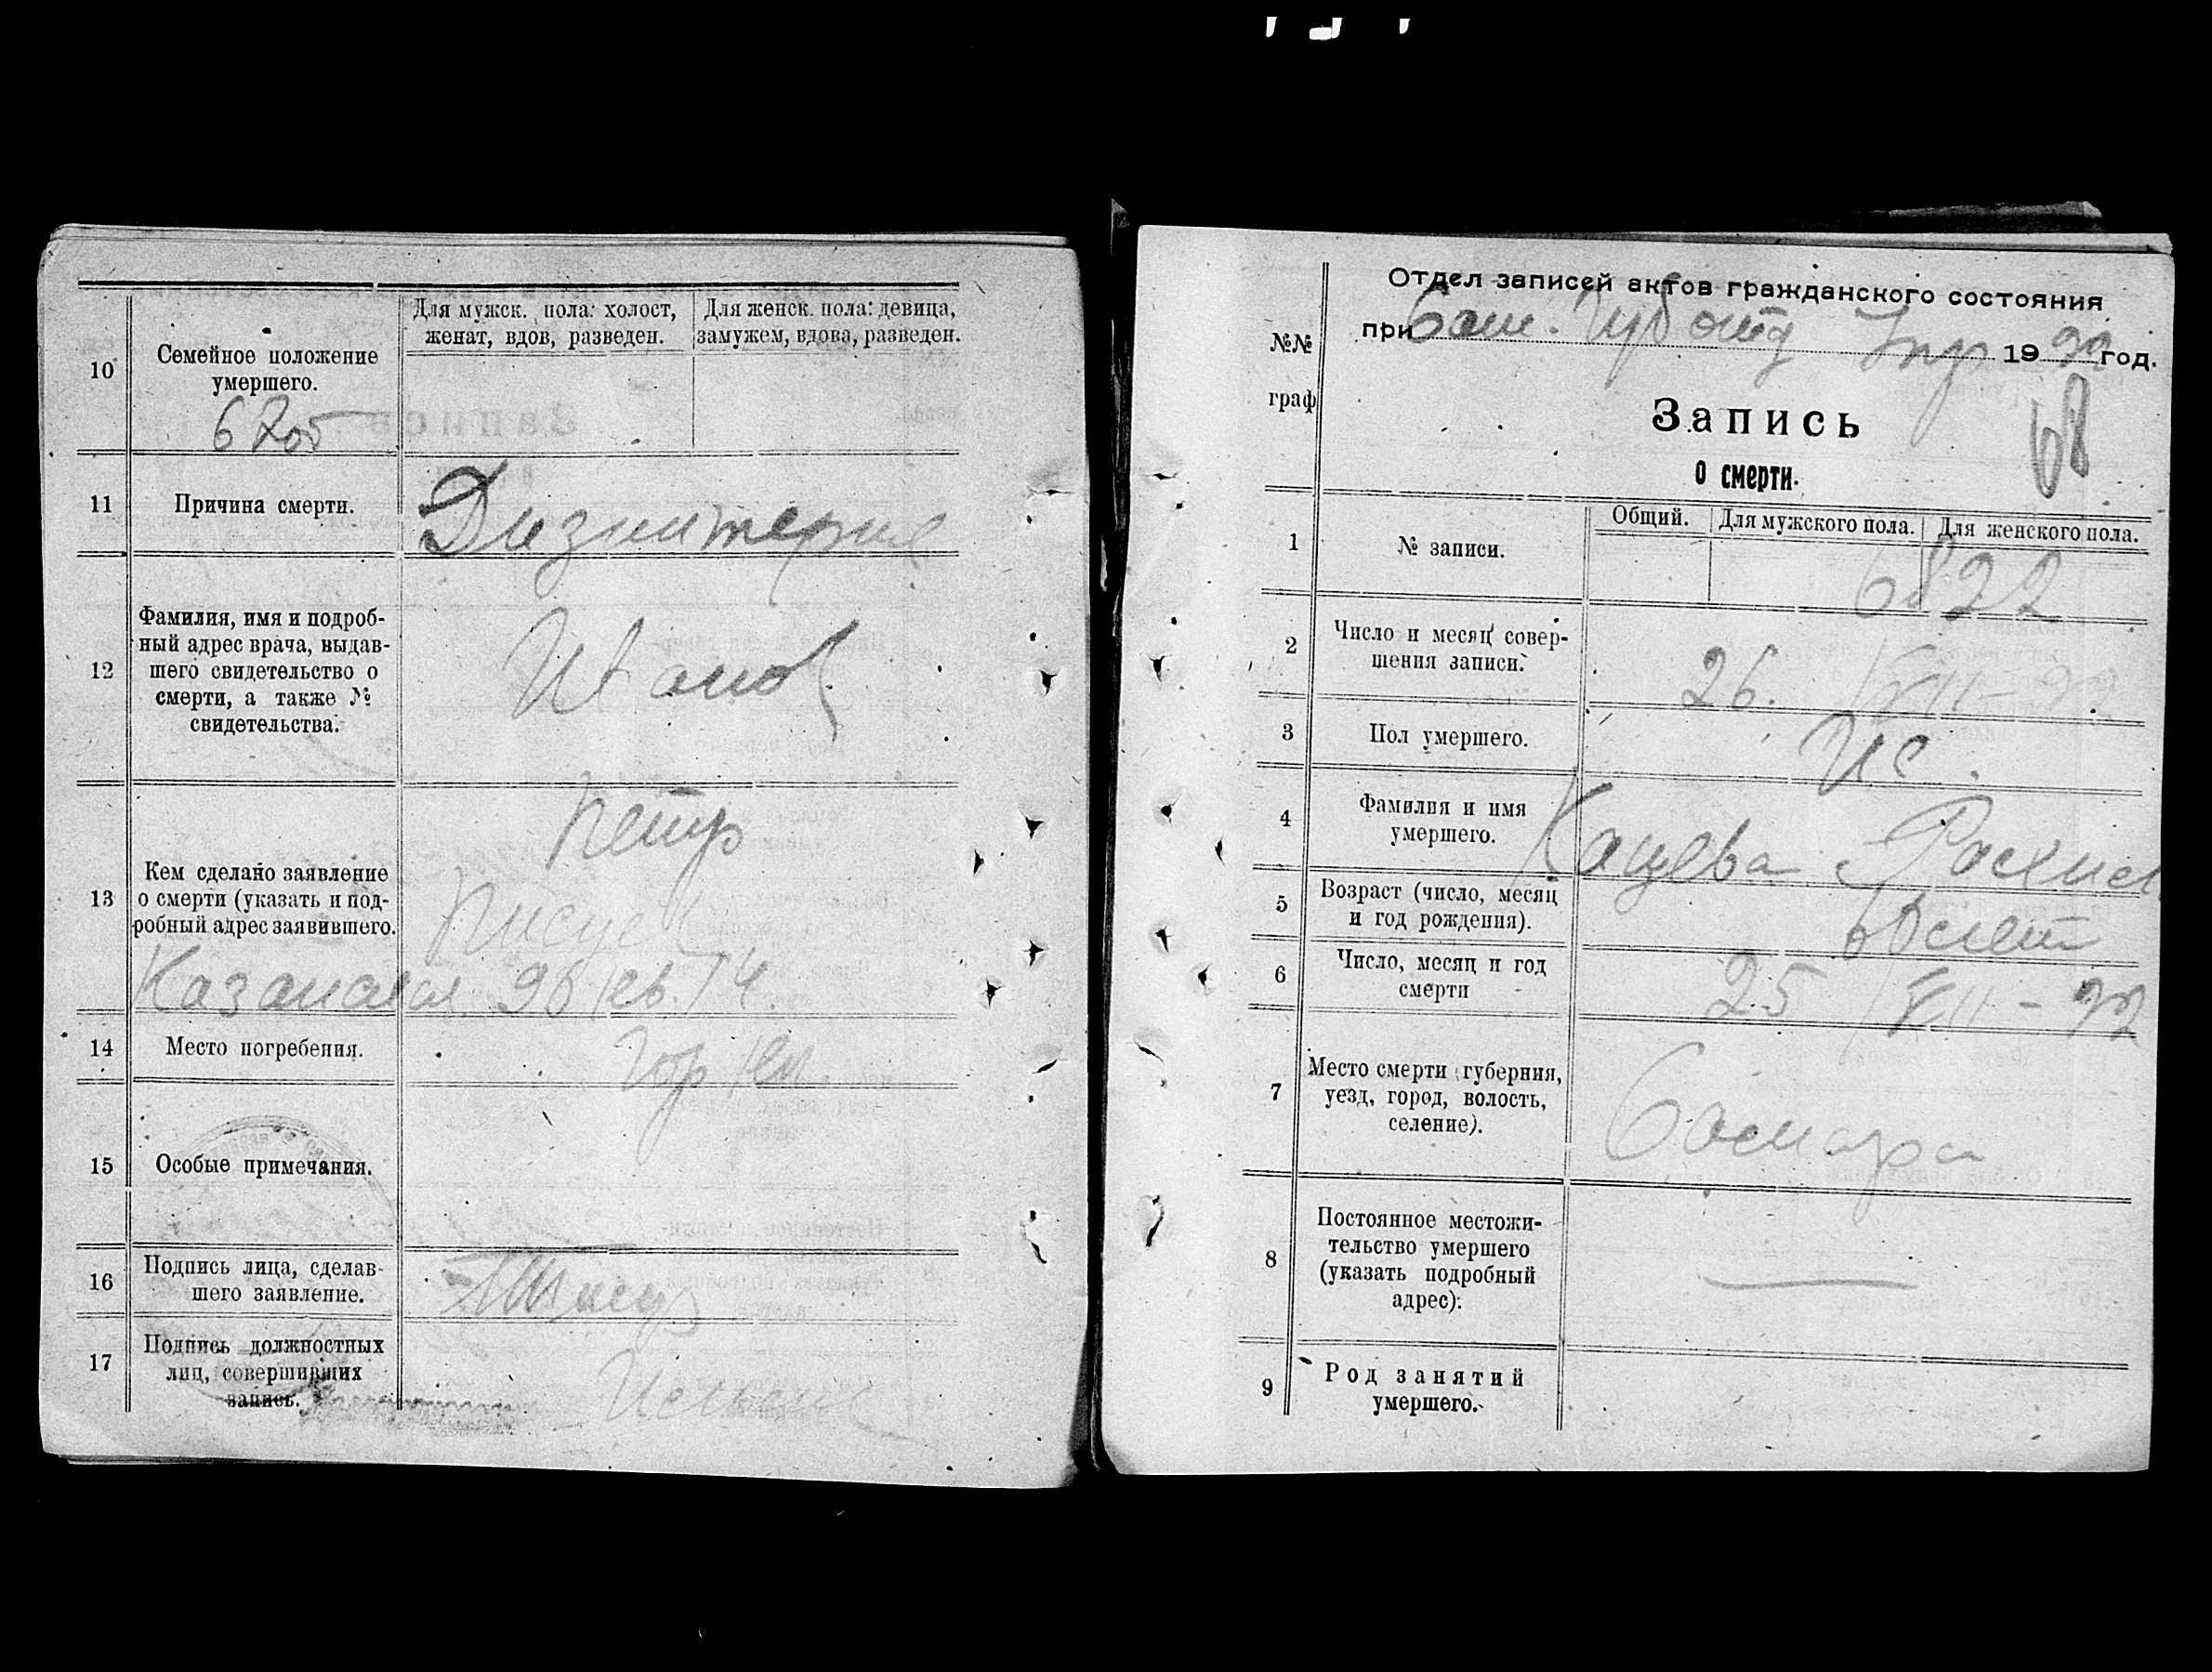 10
Семейное положение
умершего.
Для мужск. пола: холост,
женат, вдов, разведен.
Для женск. пола: девица,
замужем, вдова, разведен.
11
Причина смерти.
Дизинтерия
12
Фамилия, имя и подроб-
ный адрес врача, выдав-
шего свидетельство о
смерти, а также №
свидетельства.
Иванов
13
Кем сделано заявление
о смерти (указать и под-
робный адрес заявившего.
Петр
Казанская 96 кв. 14.
14
Место погребения.
15
Особые примечания.
16
Подпись лица, сделав-
шего заявление.
17
Подпись должностных
лиц, совершивших
запись.
Отдел записей актов гражданского состояния
при Сам. Губотд Упр 1922 год.
№№
граф
Запись
о смерти.
68
1
№ записи.
Общий.
Для мужского пола.
Для женского пола.
6822
2
Число и месяц совер-
шения записи.
26. VII-22
3
Пол умершего.
4
Фамилия и имя
умершего.
Кацева
5
Возраст (число, месяц
и год рождения).
лет
6
Число, месяц и год
смерти
25 VII-22
7
Место смерти (губерния,
уезд, город, волость,
селение).
Самара
8
Постоянное местожи-
тельство умершего
(указать подробный
адрес).
9
Род занятий
умершего.